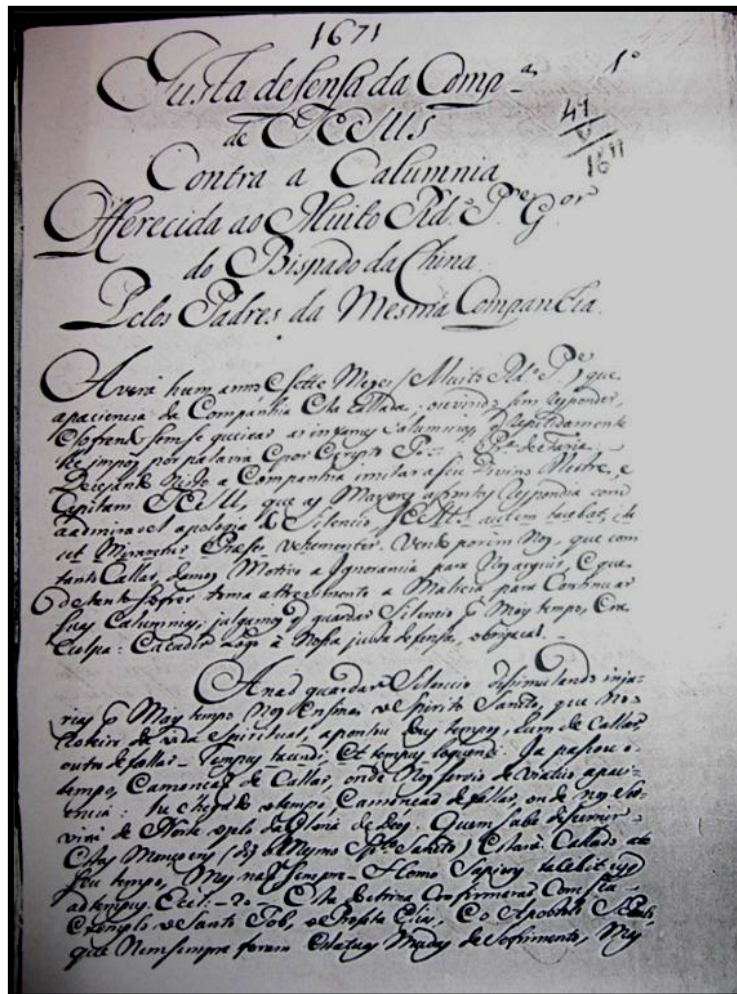 1671
Justa defensa da Comp.ª
1º
de JESUS
47
Contra a Calumnia
1671
Offerecida ao Muito Rd.º P.e G.or
do Bispado da China
Pelos Padres da Mesma Companhia.
Averá hum anno, e sette Mezes (Muito Rd.º P.e) que
a paciencia da Companhia esta callada; ouvindo sem responder,
e sofrendo sem se queixar as injurias, calumnias q repetidamente
lhe impoz por palavra, e por escripto o P.e de Faria.
Dezejando nisto a Companhia imitar a seu Divino Mestre, e
Capitam JESU, que as Mayores afrontas respondia com
a admiravel apologia do Silencio, JESUS autem tacebat, ita
ut Miraretur Præses vehementer. Vendo porem Nos, que com
tanto Callar, damos Motivo a Ignorancia para Nos arguir, e que
de tanto sofrer toma atrevimento a Malicia para Continuar
suas Calumnias; julgamos q guardar Silencio p.r Mais tempo, era
Culpa: e acudir Logo à Nossa justa defensa, obrigaçaõ.
A naõ guardar Silencio dissimulando inju-
rias p.r Mais tempo Nos Ensina o Espirito Santo, que No
Roteiro da vida Spiritual, apontou dous tempos, hum de Callar,
outro de fallar - Tempus tacendi, Et tempus loquendi. Ja passou o
tempo, e a monçaõ de Callar, onde Nos servio de viatico a paci-
encia: he chegado o tempo, e a monçaõ de fallar, onde Nos ser-
virá de Norte o zelo da Gloria de Deos. Quem sabe discernir
Estas Monçoens (diz o Mesmo Sp.to Santo) Estará Callado até
seu tempo, Mas naõ Sempre - Homo Sapiens tacebit usq
ad tempus. Eccl. - 20 - Esta Doutrina Confirmaraõ Com seu
Exemplo o Santo Job, o Profeta Elias, e o Apostolo S. Paulo,
que Nem sempre foram Estatuas Mudas de Sofrimento, Mas